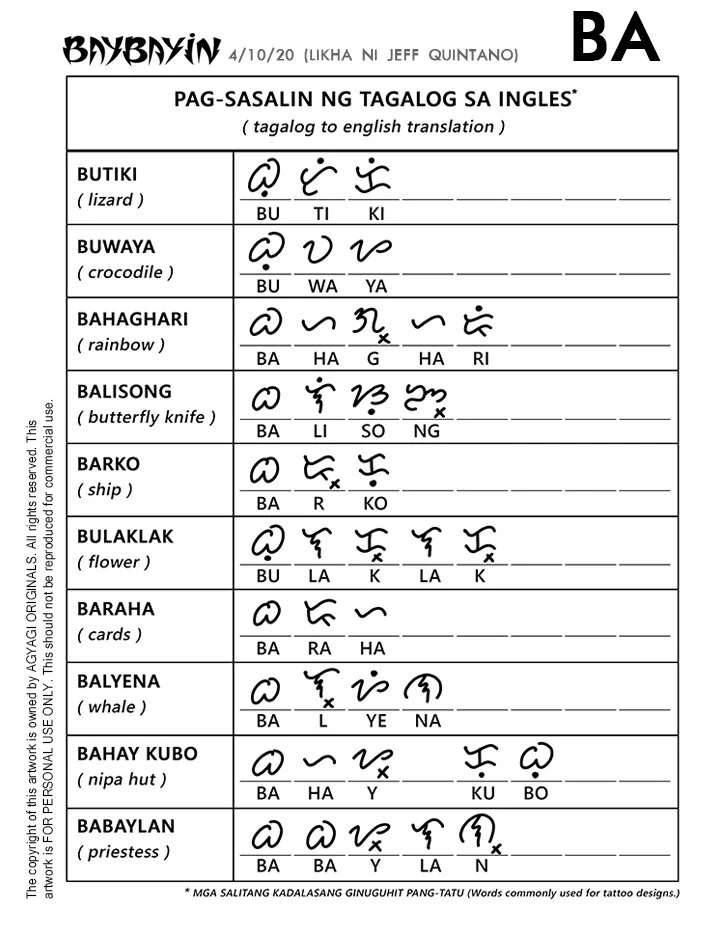 BAYBAYIN 4/10/20 (LIKHA NI JEFF QUINTANO) BA
PAG-SASALIN NG TAGALOG SA INGLES*
( tagalog to english translation )
BUTIKI
( lizard )
ᜊᜓ ᜆᜒ ᜃᜒ
BU TI KI
BUWAYA
( crocodile )
ᜊᜓ ᜏ ᜌ
BU WA YA
BAHAGHARI
( rainbow )
ᜊ ᜑ ᜄ᜔ ᜑ ᜍᜒ
BA HA G HA RI
BALISONG
( butterfly knife )
ᜊ ᜎᜒ ᜐᜓ ᜅ᜔
BA LI SO NG
BARKO
( ship )
ᜊ ᜍ᜔ ᜃᜓ
BA R KO
BULAKLAK
( flower )
ᜊᜓ ᜎ ᜃ᜔ ᜎ ᜃ᜔
BU LA K LA K
BARAHA
( cards )
ᜊ ᜍ ᜑ
BA RA HA
BALYENA
( whale )
ᜊ ᜎ᜔ ᜌᜒ ᜈ
BA L YE NA
BAHAY KUBO
( nipa hut )
ᜊ ᜑ ᜌ᜔ ᜃᜓ ᜊᜓ
BA HA Y KU BO
BABAYLAN
( priestess )
ᜊ ᜊ ᜌ᜔ ᜎ ᜈ᜔
BA BA Y LA N
* MGA SALITANG KADALASANG GINUGUHIT PANG-TATU (Words commonly used for tattoo designs.)
The copyright of this artwork is owned by AGYAGI ORIGINALS. All rights reserved. This
artwork is FOR PERSONAL USE ONLY. This should not be reproduced for commercial use.